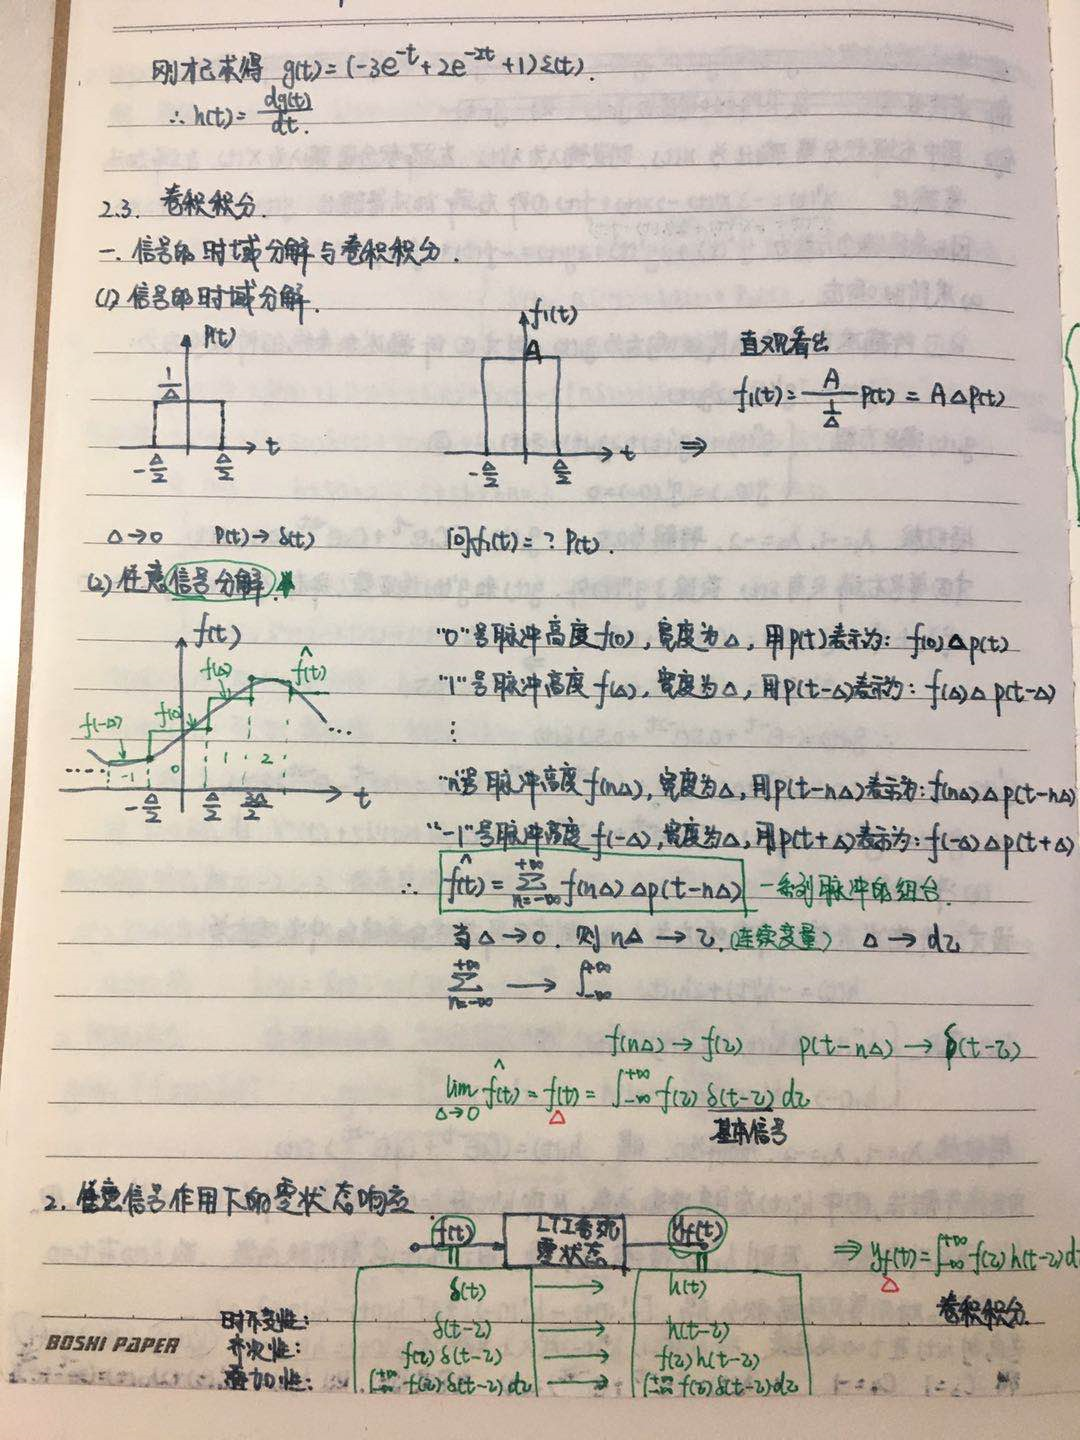 刚才已求得 g(t)=(-3e^{-t}+2e^{-2t}+1)ε(t).
∴h(t)=\frac{dg(t)}{dt}.
2.3. 卷积积分.
一. 信号的时域分解与卷积积分.
(1) 信号的时域分解.
P(t)
\frac{1}{Δ}
-\frac{Δ}{2} \frac{Δ}{2} t
f₁(t)
A
-\frac{Δ}{2} \frac{Δ}{2} t
⇒
直观看出
f₁(t)=\frac{A}{\frac{1}{Δ}}P(t)=AΔP(t)
Δ→0 P(t)→δ(t) 问f₁(t)=?P(t).
(2) 任意信号分解.
f(t)
f(-Δ) f(0) f(Δ) \hat{f}(t)
... -1 0 1 2 ...
-\frac{Δ}{2} \frac{Δ}{2} \frac{3Δ}{2} t
"0"号脉冲高度f(0),宽度为Δ,用p(t)表示为: f(0)Δp(t)
"1"号脉冲高度f(Δ),宽度为Δ,用p(t-Δ)表示为: f(Δ)Δp(t-Δ)
⋮
"n"号脉冲高度f(nΔ),宽度为Δ,用p(t-nΔ)表示为: f(nΔ)Δp(t-nΔ)
"-1"号脉冲高度f(-Δ),宽度为Δ,用p(t+Δ)表示为: f(-Δ)Δp(t+Δ)
∴ \hat{f}(t)=\sum_{n=-∞}^{+∞}f(nΔ)Δp(t-nΔ) 一系列脉冲的组合.
当Δ→0. 则nΔ→τ.(连续变量) Δ→dτ
\sum_{n=-∞}^{+∞} → \int_{-∞}^{+∞}
f(nΔ)→f(τ) p(t-nΔ)→δ(t-τ)
\lim_{Δ→0}\hat{f}(t)=f(t)=\int_{-∞}^{+∞}f(τ)δ(t-τ)dτ
基本信号
2. 任意信号作用下的零状态响应
f(t) LTI系统 y_f(t)
零状态
⇒ y_f(t)=\int_{-∞}^{+∞}f(τ)h(t-τ)d
卷积积分.
δ(t) → h(t)
时不变性: δ(t-τ) → h(t-τ)
齐次性: f(τ)δ(t-τ) → f(τ)h(t-τ)
叠加性: \int_{-∞}^{+∞}f(τ)δ(t-τ)dτ → \int_{-∞}^{+∞}f(τ)δ(t-τ)dτ
BOSHI PAPER